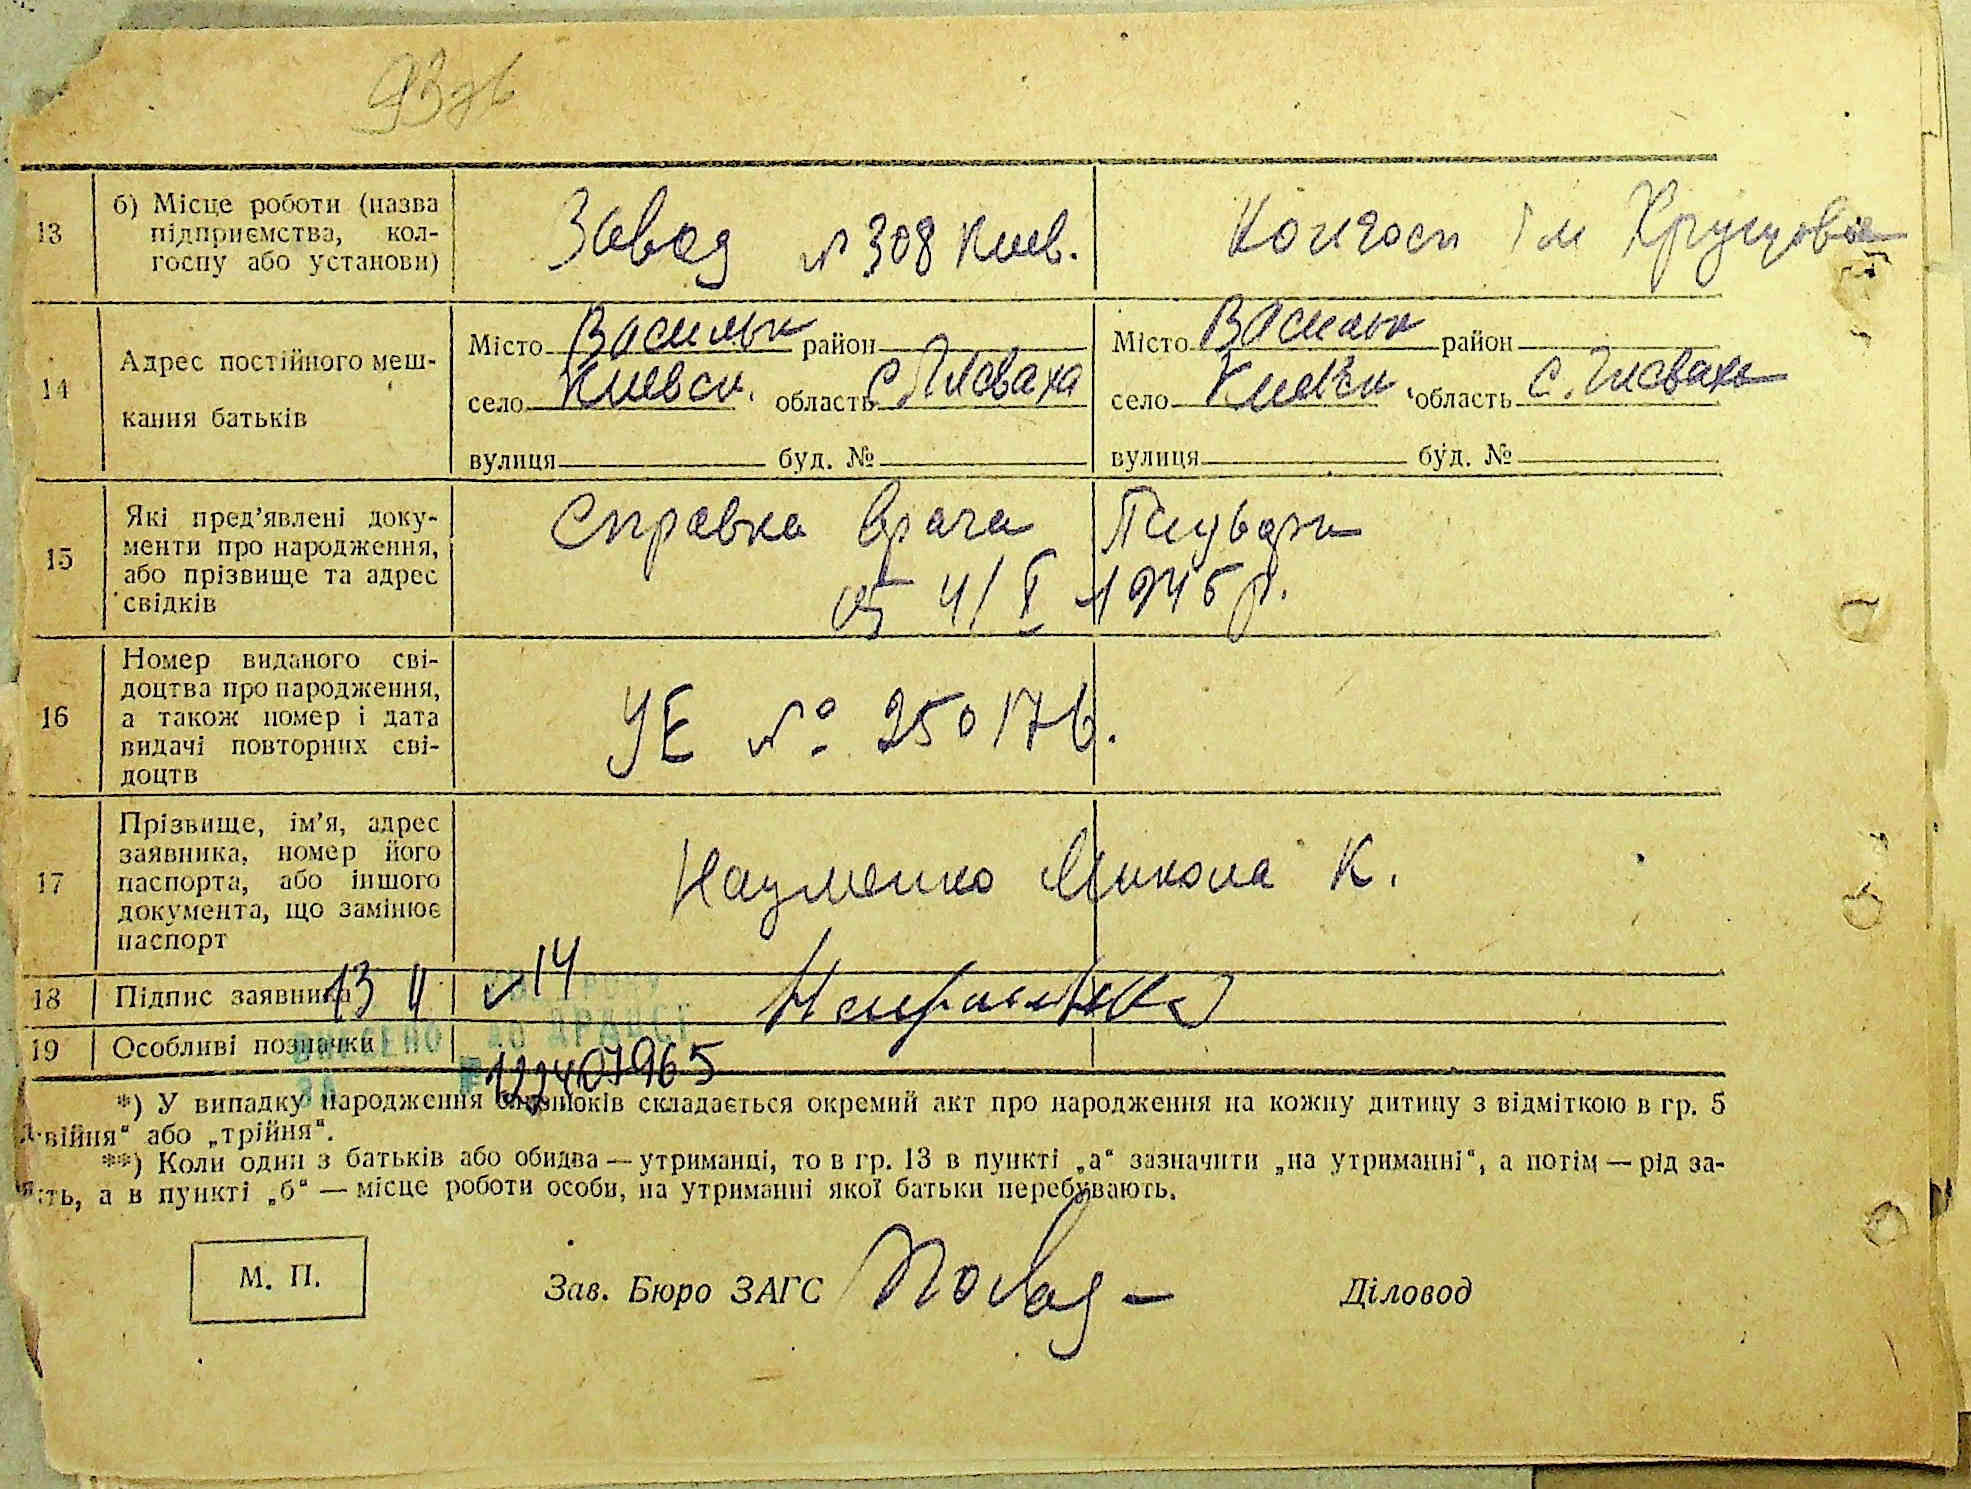 93 зв
13 б) Місце роботи (назва підприємства, колгоспу або установи) Завод № 308 Киев. Колгосп ім Хрущова
14 Адрес постійного мешкання батьків
Місто Васильк район Місто Васильк район
село Киевск. область с. Глеваха село Киевск область с. Глеваха
вулиця буд. № вулиця буд. №
15 Які пред'явлені документи про народження, або прізвище та адрес свідків
Справка врача
от 4/I 1946 р.
16 Номер виданого свідоцтва про народження, а також номер і дата видачі повторних свідоцтв
УЕ № 250176.
17 Прізвище, ім'я, адрес заявника, номер його паспорта, або іншого документа, що замінює паспорт
Науменко Микола К.
18 Підпис заявника 13 11 14
19 Особливі позначки
ВНЕСЕНО ДО ДРАЦСГ
ЗА № 122407965
*) У випадку народження близнюків складається окремий акт про народження на кожну дитину з відміткою в гр. 5
двійня“ або „трійня“.
**) Коли один з батьків або обидва — утриманці, то в гр. 13 в пункті „а“ зазначити „на утриманні“, а потім — рід за-
ять, а в пункті „б“ — місце роботи особи, на утриманні якої батьки перебувають.
М. П. Зав. Бюро ЗАГС Діловод